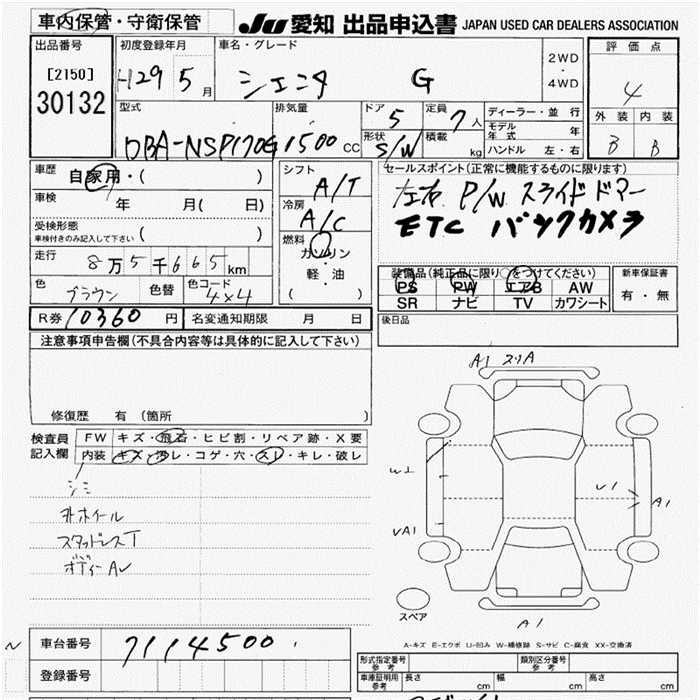 車内保管・守衛保管
JU 愛知 出品申込書 JAPAN USED CAR DEALERS ASSOCIATION
出品番号
[2150]
30132
初度登録年月
H29 5 月
車名・グレード
シエンタ G
2WD
・
4WD
評価点
4
外装 内装
B B
型式
DBA-NSP170G
排気量
1500 CC
ドア
5
形状
S/W
定員
7人
積載
kg
ディーラー・並行
モデル年式 年
ハンドル 左・右
車歴
自家用・( )
車検
年 月( 日)
受検形態
車検付きのみ記入して下さい ( )
走行
8万5千665km
色
ブラウン
色替
色コード
4x4
シフト
A/T
冷房
A/C
燃料
ガソリン
・
軽・油
( )
セールスポイント(正常に機能するものに限ります)
左右 P/W スライドドアー
ETC バックカメラ
装備品(純正品に限り○をつけてください)
PS PW エアB AW
SR ナビ TV カワシート
新車保証書
有・無
R券 10360 円
名変通知期限 月 日
後日品
注意事項申告欄(不具合内容等は具体的に記入して下さい)
修復歴 有(箇所 )
検査員
記入欄
FW キズ・飛石・ヒビ割・リペア跡・X要
内装 キズ・汚レ・コゲ・穴・スレ・キレ・破レ
シミ
外ホイール
スタッドレスT
ボディーAU
A1 スリA
W1
UA1
U1
A1
スペア
A1
A-キズ E-エクボ U-凹み W-補修跡 S-サビ C-腐食 XX-交換済
車台番号
7114500
登録番号
形式指定番号
参考
類別区分番号
参考
車庫証明用
参考
長さ cm
幅 cm
高さ cm